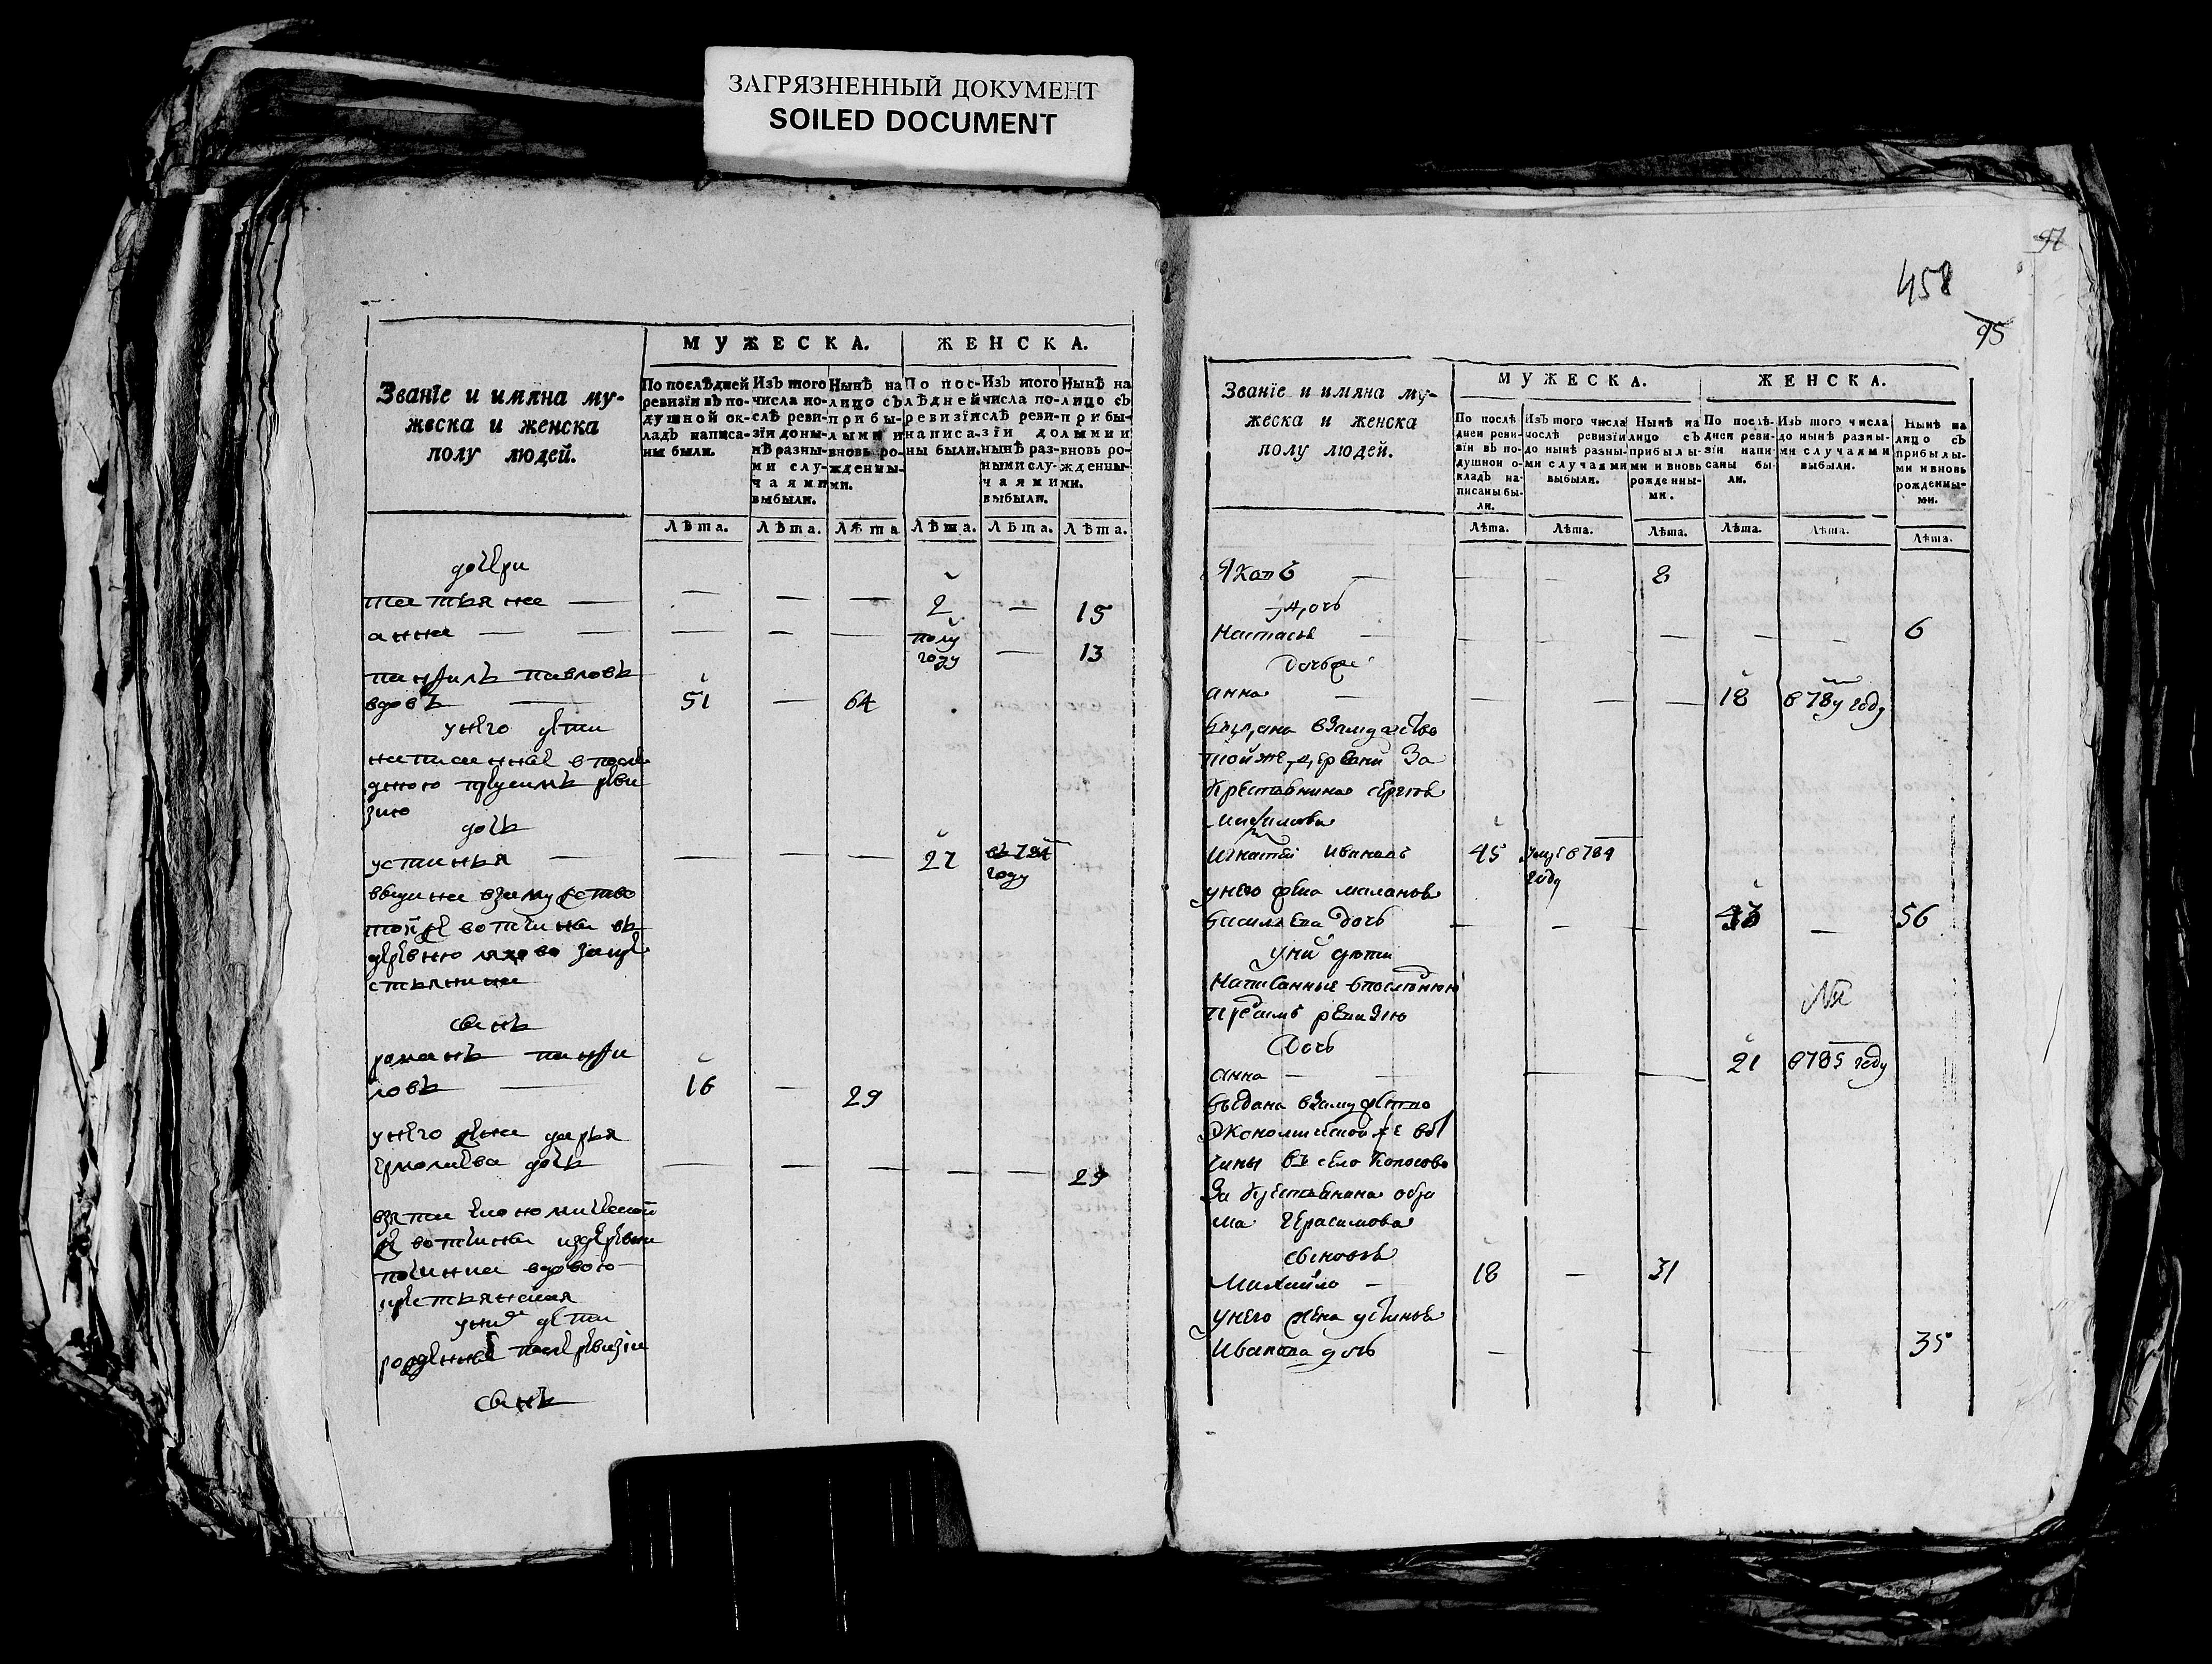 ЗАГРЯЗНЕННЫЙ ДОКУМЕНТ
SOILED DOCUMENT
Званїе и имяна му-
жеска и женска
полу людей.
МУЖЕСКА.
ЖЕНСКА.
По послѣдней
ревизїи въ по-
душной ок-
ладъ написа-
ны были.
Изъ того
числа по-
слѣ реви-
зїи доны-
нѣ разны-
ми слу-
чаями
выбыли.
Нынѣ на
лицо съ
прибы-
лыми и
вновь ро-
жденны-
ми.
По пос-
лѣдней
ревизїи
написа-
ны были.
Изъ того
числа по-
слѣ реви-
зїи до
нынѣ раз-
ными слу-
чаями
выбыли.
Нынѣ на
лицо съ
прибы-
лыми и
вновь ро-
жденны-
ми.
Лѣта. Лѣта. Лѣта Лѣта. Лѣта. Лѣта.
дочери
татьяна — — — — 2 — 15
анна — — — — — полу году — 13
панфилъ павловъ
вдовъ — 51 — 64
у него дети
написанные в после
днюю пред симъ реви
зию
дочь
устинья — — — — 27 въ 784 году
выдана взамужство
той же вотчины въ
деревню
сынъ
романъ панфи
ловъ — 16 — 29
у него жена дарья
ермолаева дочь — — — — — 29
взята економической
же вотчины из деревни
крестьянская
у них дети
рожденные после ревизии
сынъ
97
458
95
Званїе и имяна му-
жеска и женска
полу людей.
МУЖЕСКА.
ЖЕНСКА.
По послѣ
дней реви-
зїи въ по-
душной о-
кладъ на-
писаны бы-
ли.
Изъ того числа
послѣ ревизїи
до нынѣ разны-
ми случаями
выбыли.
Нынѣ на
лицо съ
прибылы-
ми и вновь
рожденны-
ми.
По послѣ-
дней реви-
зїи напи-
саны бы-
ли.
Изъ того числа
до нынѣ разны-
ми случаями
выбыли.
Нынѣ на
лицо съ
прибылы-
ми и вновь
рожденны-
ми.
Лѣта. Лѣта. Лѣта. Лѣта. Лѣта. Лѣта.
Яковъ — — — 8
дочь
Настасья — — — — — — 6
анна — — — — 18 в 784 году
выдана взамужство
той же деревни За
крестьянина
Игнатей Ивановъ 45 умре в 784 году
у него жена маланья
васильева дочь — — — 43 — 56
у них дети
Написанные в последнюю
пред симъ ревизию
Дочь
анна — — — — 21 в 785 году
выдана взамужство
экономической же вот
чины въ село
За крестьянина
ма Герасимова
сыновья
Михайло — 18 — 31
у него жена устинья
Иванова дочь — — — 35